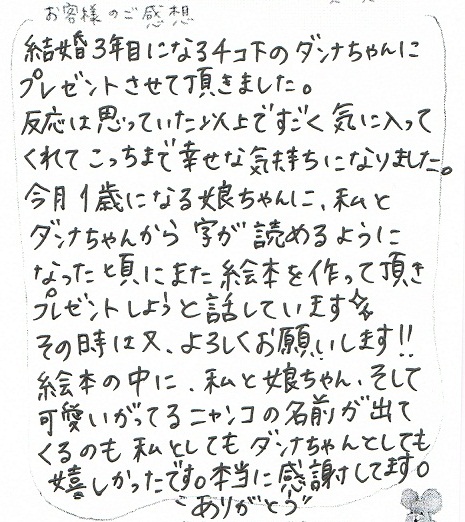 お客様のご感想
結婚3年目になる4コ下のダンナちゃんに
プレゼントさせて頂きました。
反応は思っていた以上ですごく気に入って
くれてこっちまで幸せな気持ちになりました。
今月1歳になる娘ちゃんに、私と
ダンナちゃんから字が読めるように
なったと頃にまた絵本を作って頂き
プレゼントしようと話しています☆
その時は又、よろしくお願いします!!
絵本の中に、私と娘ちゃん、そして
可愛いがってるニャンコの名前が出て
くるのも私としてもダンナちゃんとしても
嬉しかったです。本当に感謝してます。
"ありがとう"